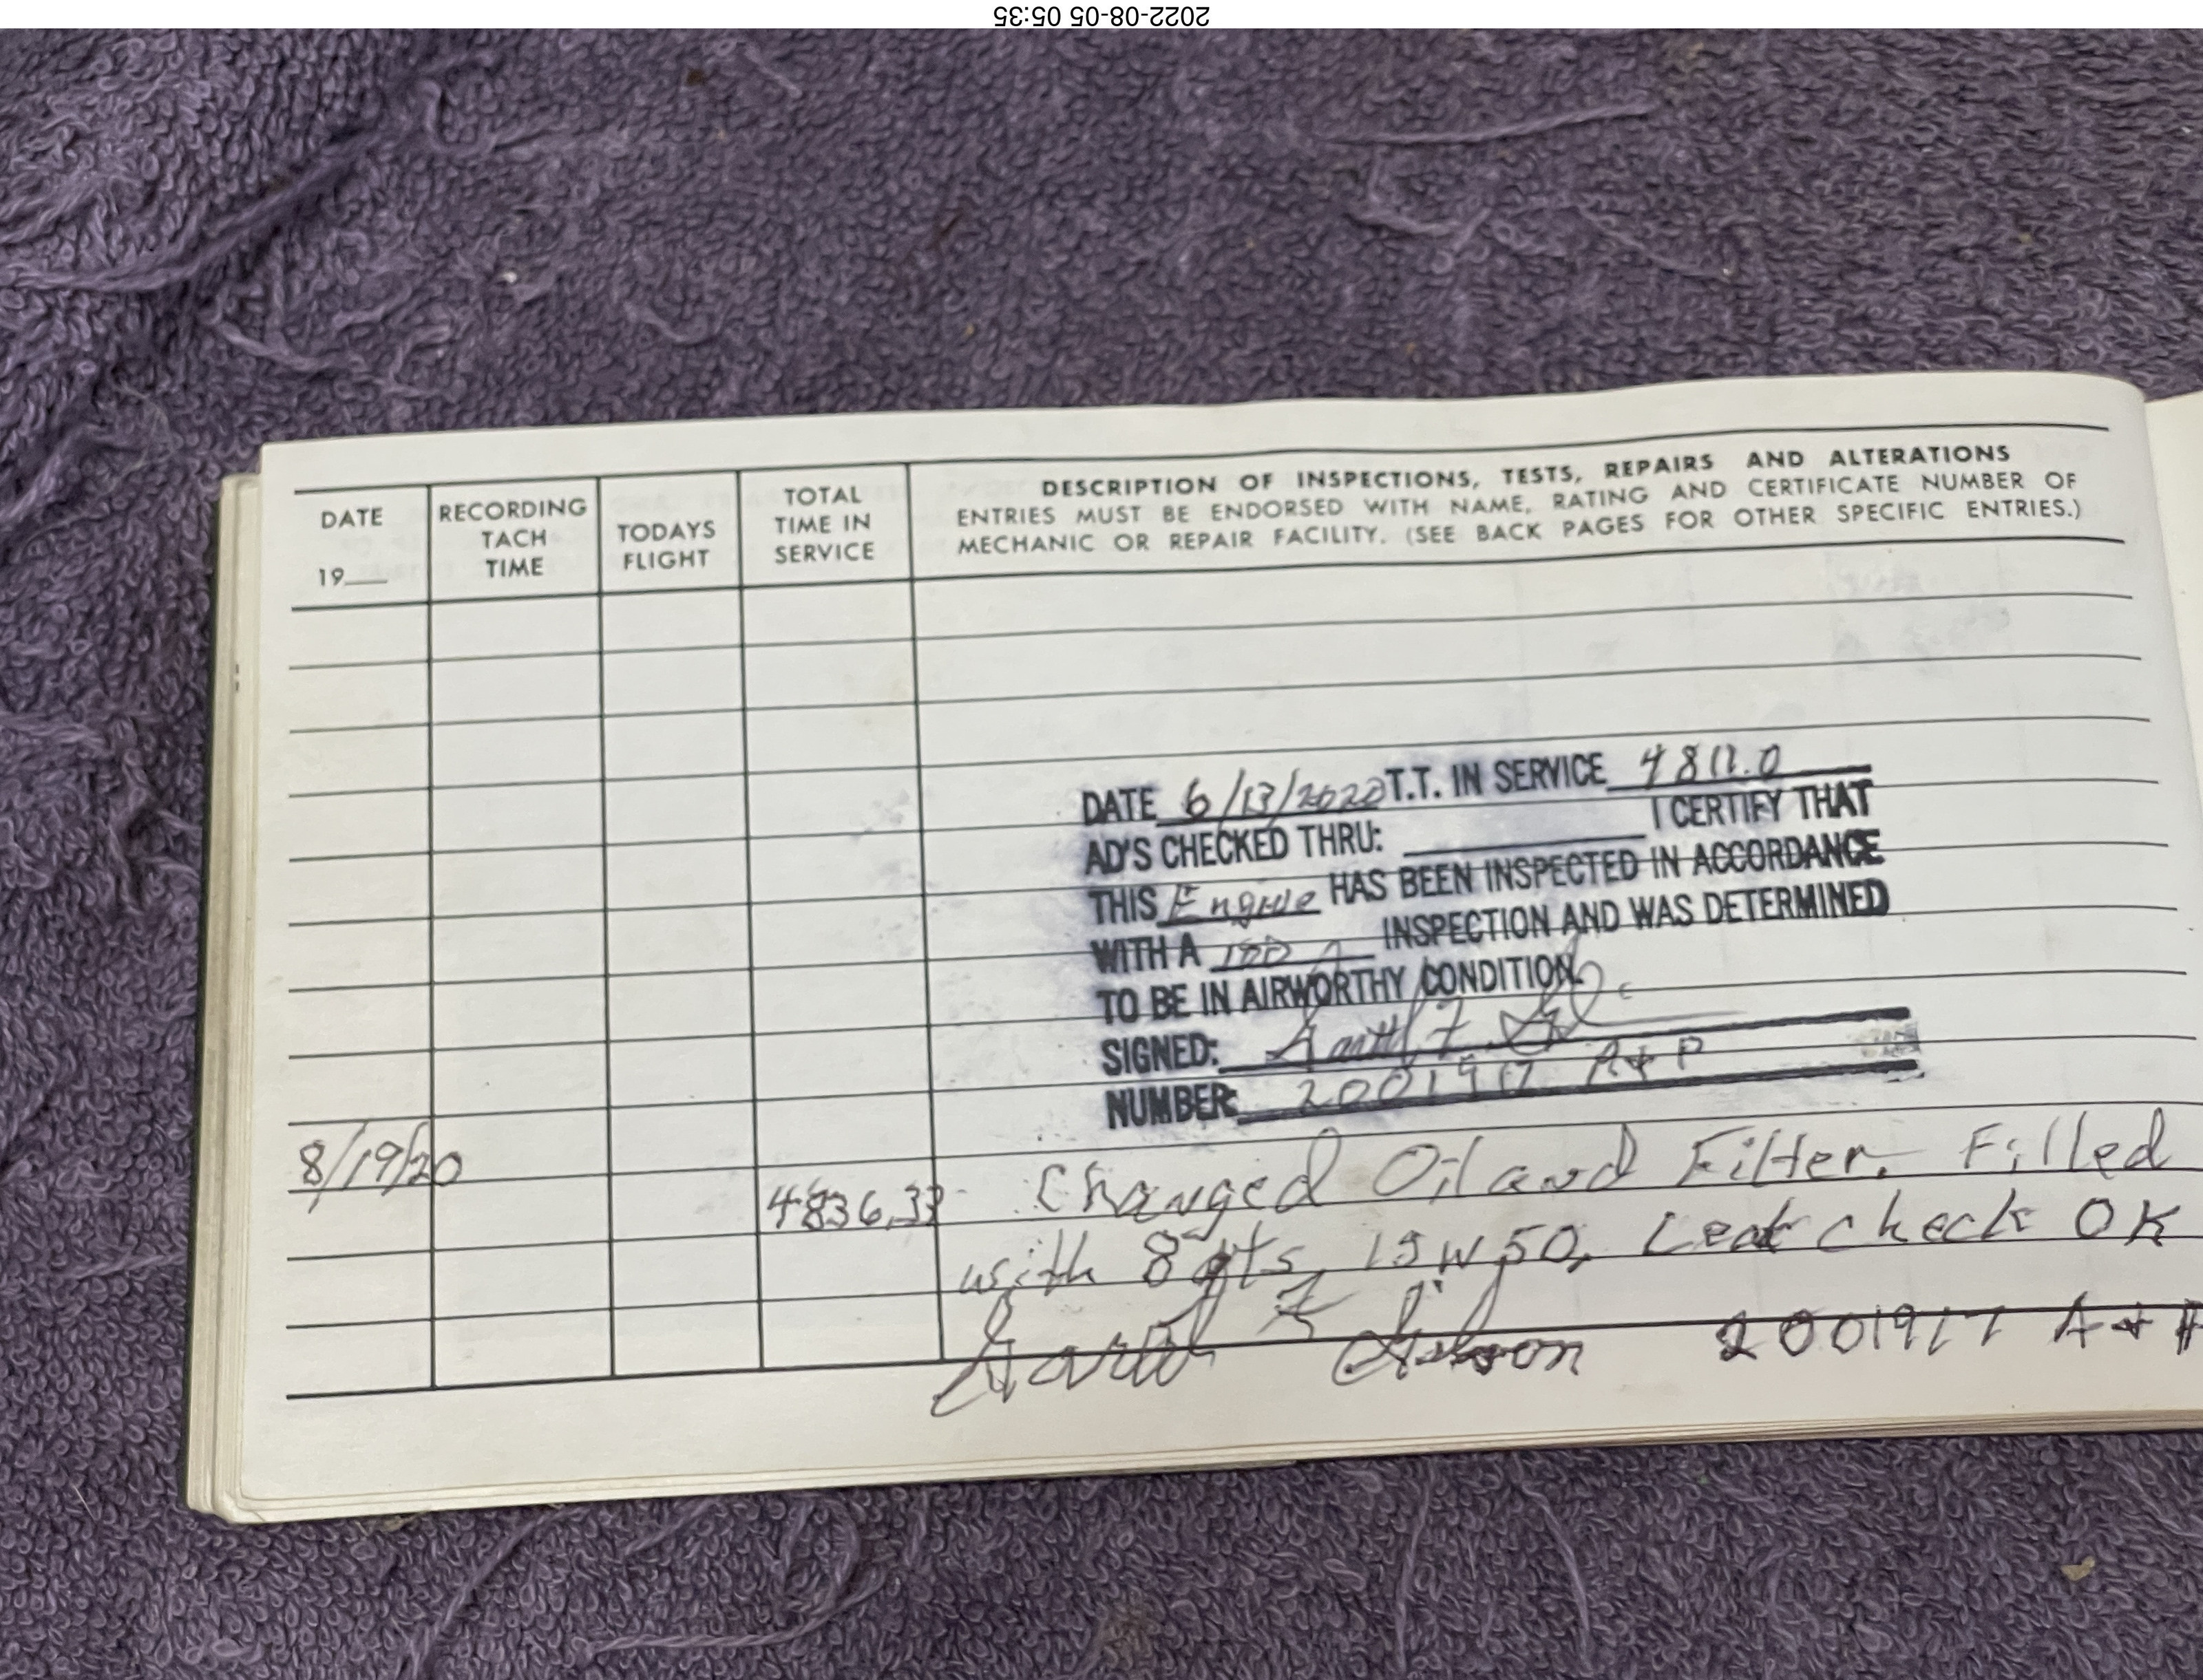 2022-08-05 05:35
DATE
19___
RECORDING
TACH
TIME
TODAYS
FLIGHT
TOTAL
TIME IN
SERVICE
DESCRIPTION OF INSPECTIONS, TESTS, REPAIRS AND ALTERATIONS
ENTRIES MUST BE ENDORSED WITH NAME, RATING AND CERTIFICATE NUMBER OF
MECHANIC OR REPAIR FACILITY. (SEE BACK PAGES FOR OTHER SPECIFIC ENTRIES.)
DATE 6/13/2020 T.T. IN SERVICE 4811.0
AD'S CHECKED THRU: I CERTIFY THAT
THIS Engine HAS BEEN INSPECTED IN ACCORDANCE
WITH A 100 INSPECTION AND WAS DETERMINED
TO BE IN AIRWORTHY CONDITION.
SIGNED:
NUMBER: 2001917 A+P
8/19/20 4836.33 Changed Oil and Filter. Filled
with 8 qts 15W50, Leak check OK
Garth F 2001917 A+P